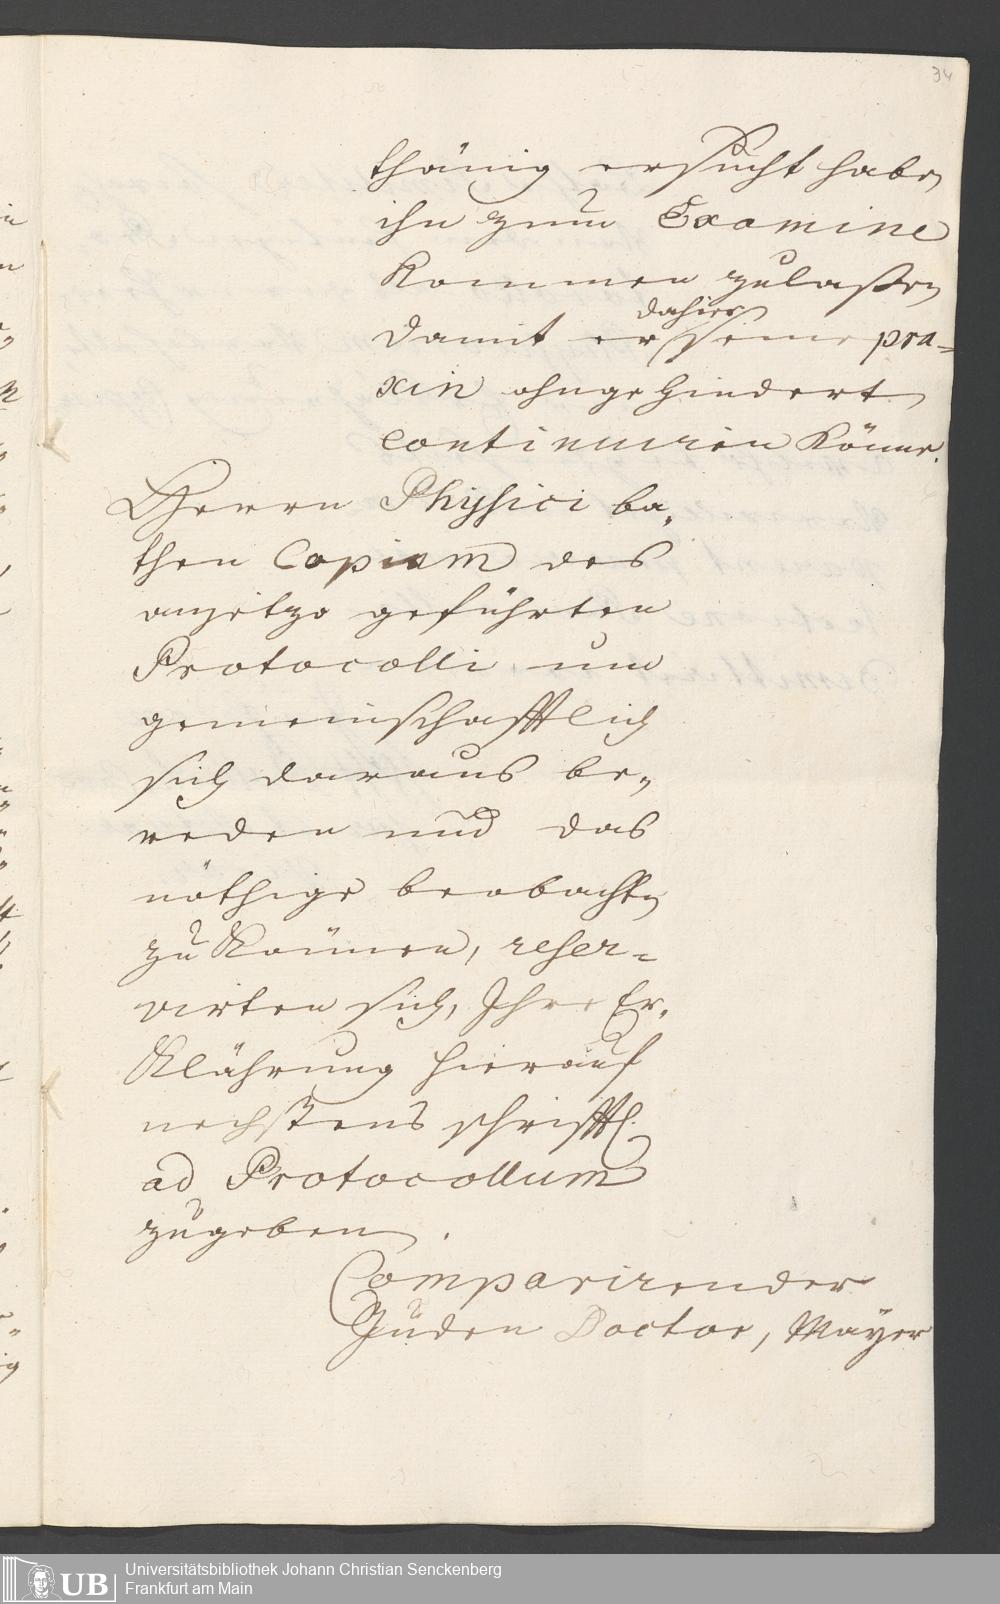 34
thänig ersucht habe,
ihn zum Examine
kommen zulaßen
damit er dahier seine pra=
xin ohngehindert
continuiren könne.
Herrn Physici ba,
then Copiam des
anjetzo geführten
Protocolli, um
gemeinschafftlich
sich daraus be,
reden und das
nöthige beobachten
zu können, reser=
virten sich, Ihre Er,
klährung hierauf
nechstens schrifftl.
ad Protocollum
zugeben.
Comparirender
Juden Doctor, Mayer
UB
Universitätsbibliothek Johann Christian Senckenberg
Frankfurt am Main